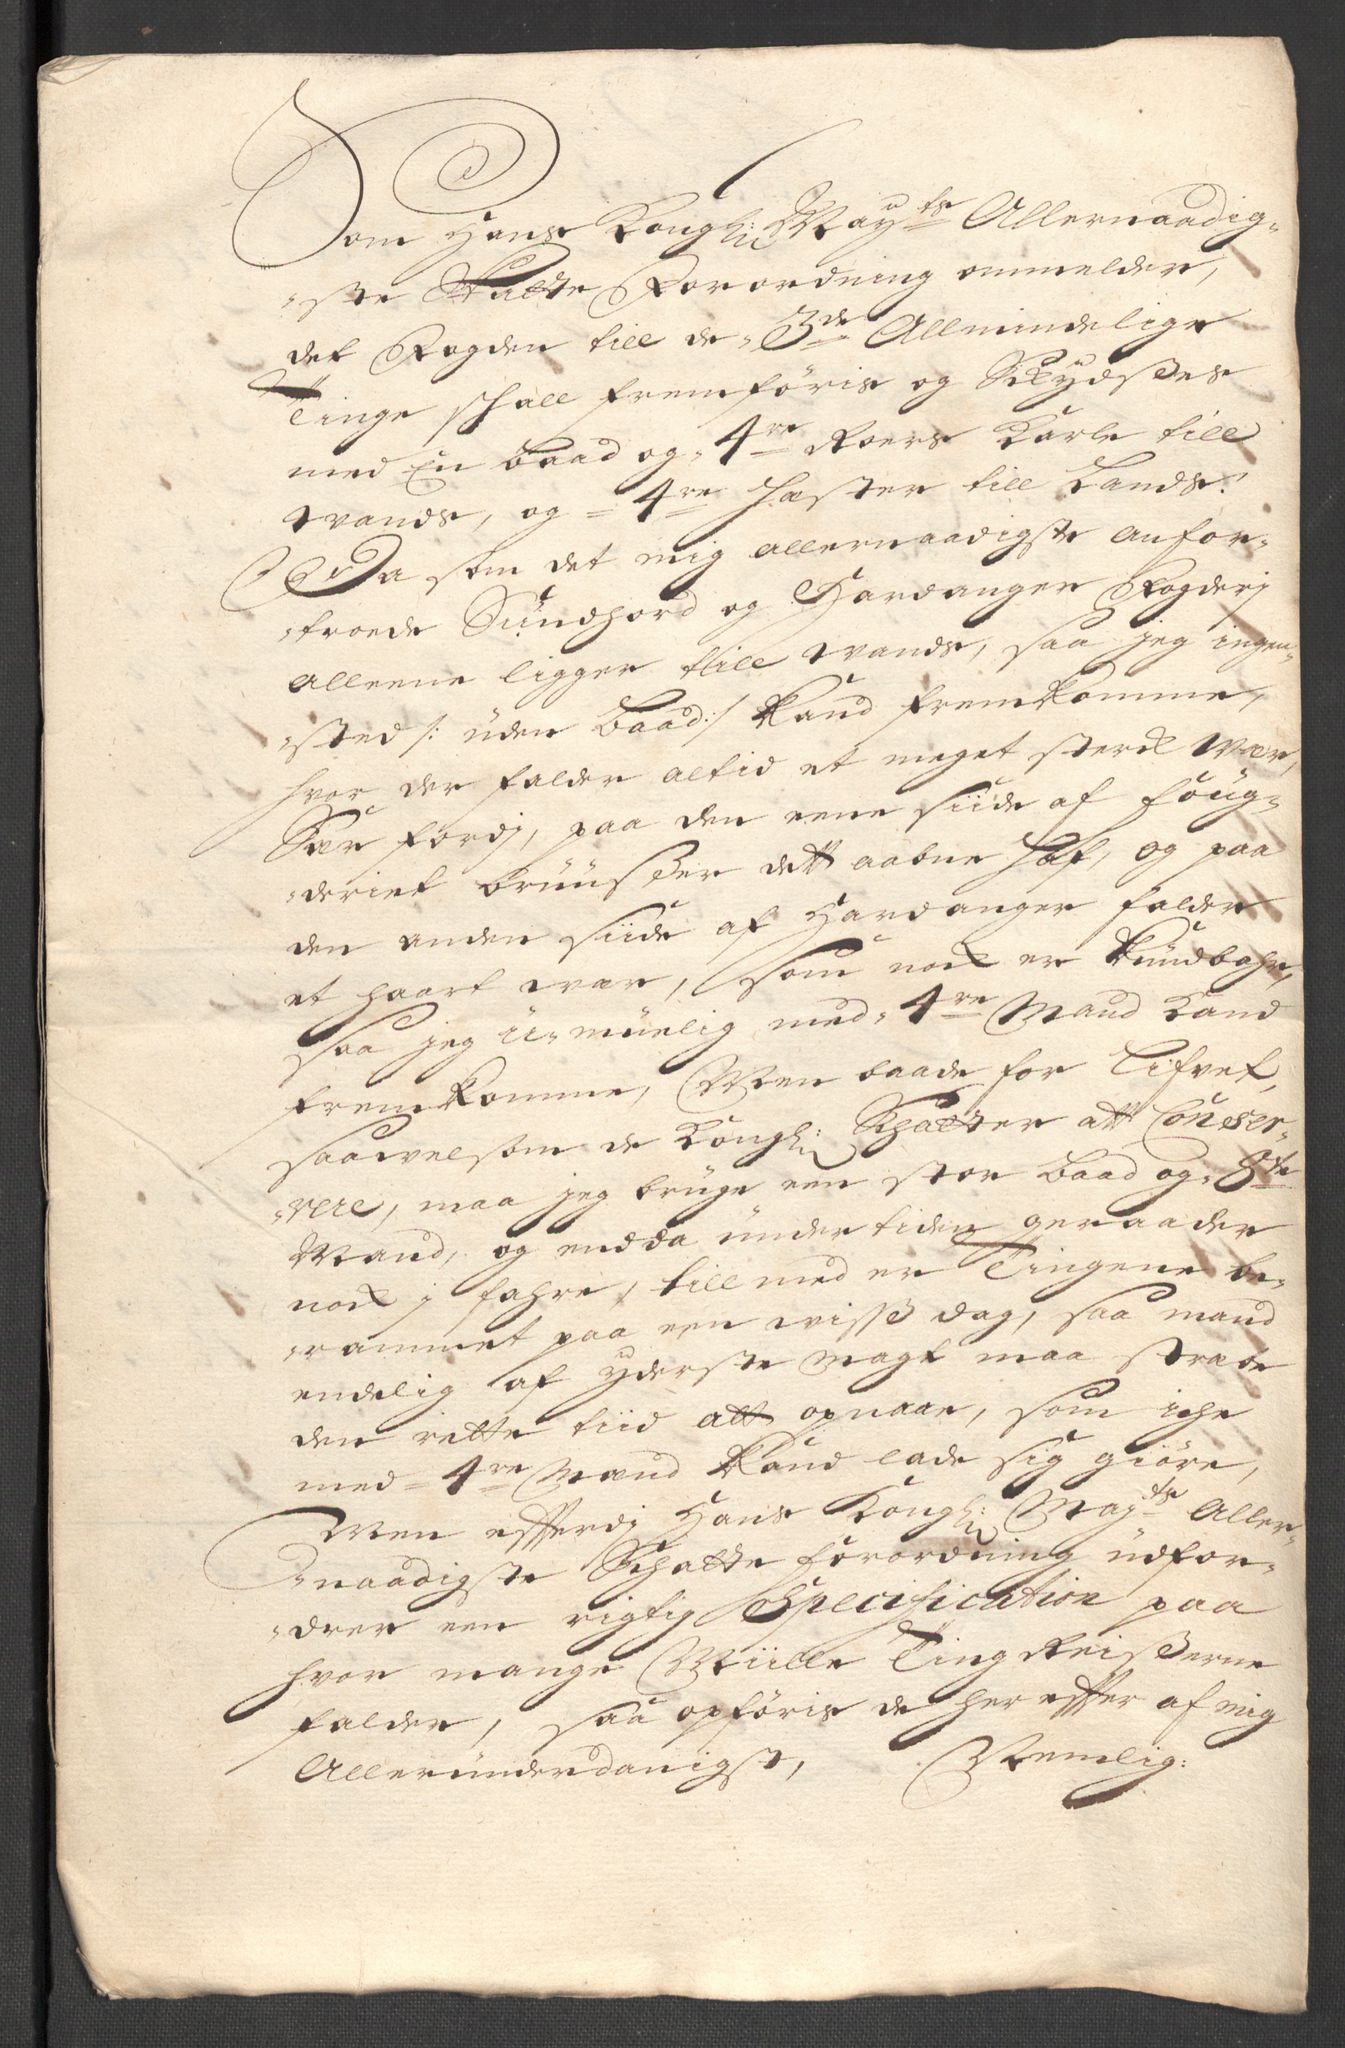 Som Hans Kongl: Mayts Allernaadig-
-ste Skatte Forordning ommelder,
det Fogden till de 3de Allmindelige
Tinge schall fremföris og Skÿdsses
med En baad og 4re Roers Karle till
Wands, og 4re Hæster till Lands.
Da som det mig allernaadigste anfor-
-troede Sundhord og Hardanger Fogderj
alleene ligger till Wands, saa jeg ingen-
-sted /: uden baad :/ kand fremkomme,
hvor der falder altid et meget sterck Wær,
Sær fordj, paa den eene siide af foug-
-deriet bruusser dett aabne Haf, og paa
den anden siide af Hardanger falder
et haart wær, som nock er kundbahr,
saa jeg u-muelig med 4re Mand kand
fremkomme, Men baade for Lifvet,
saavelsom de Kongl: Schatter att Conser-
-vere, maa jeg bruge een stor baad og 8te
Mand, og endda under tiden geraader
nock j fahre, till med er Tingene be-
-rammet paa een wiss dag, saa mand
endelig af yderste magt maa stræbe
den rette tiid att opnaae, som iche
med 4re Mand kand lade sig giöre,
Men efferdj Hans Kongl: Mayts Aller-
-naadigste Schatte forordning udfor-
-drer een rigtig Specification paa
hvor mange Miille Ting Reisserne
falder, saa opföris de her effter af mig
Allerunderdanigst, Nemlig: